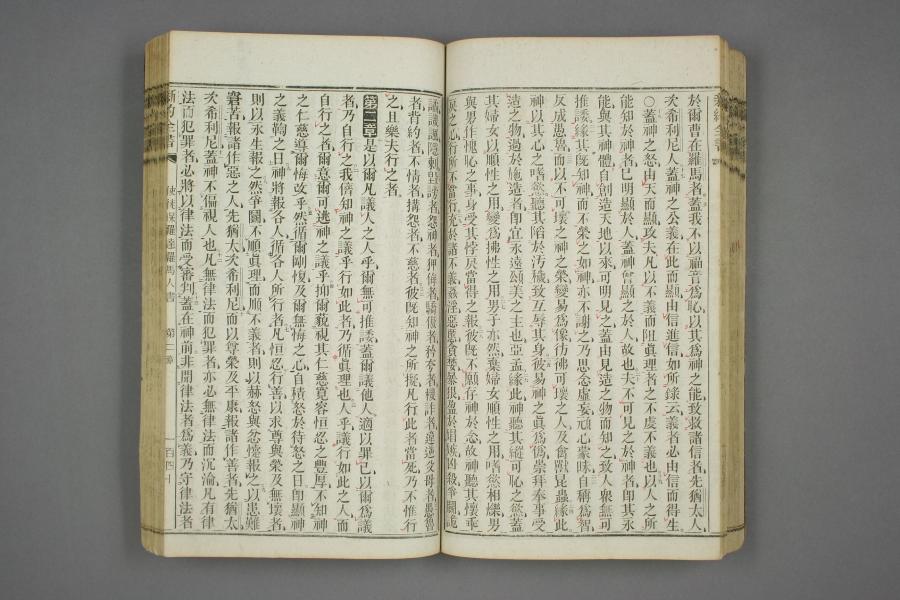 於爾曹在羅馬者蓋我不以福音爲恥以其爲神之能致救諸信者先猶太人
次希利尼人蓋神之公義在此而顯由信進信如所錄云義者必由信而得生
〇蓋神之怒由天而顯攻夫凡以不義而阻眞理者之不虔不義也以人之所
能知於神者已明顯於人蓋神曾顯之於人故也夫不可見之於神者卽其永
能與其神體自創造天地以來可明見之蓋由見造之物而知之致人衆無可
推諉緣其旣知神而不榮之如神亦不謝之乃思念虛妄頑心蒙昧自稱爲智
反成愚魯而以不可壞之神之榮變易爲像彷彿可壞之人及禽獸昆蟲緣此
神以其心之嗜慾聽其陷於汚穢致互辱其身彼易神之眞爲僞崇拜奉事受
造之物過於施造者卽宜永遠頌美之主也亞孟緣此神聽其縱可恥之慾蓋
其婦女以順性之用變爲拂性之用男子亦然棄婦女順性之用嗜慾相爍男
與男作愧恥之事身受其悖戾當得之報彼旣不願存神於念故神聽其懷乖
戾之心行所不當行充於諸不義姦淫惡慝貪婪暴狠盈於娼嫉凶殺爭鬭詭
譎
者背約者不情者搆怨者不慈者彼旣知神之所擬凡行此者當死乃不惟行
之且樂夫行之者
第二章是以爾凡議人之人乎爾無可推諉蓋爾議他人適以罪己以爾爲議
者乃自行之我儕知神之議乎行如此者乃循眞理也人乎議行如此之人而
自行之者爾意爾可逃神之議乎抑爾藐視其仁慈寬容恒忍之豐厚不知神
之仁慈導爾悔改乎然循爾剛愎及爾無悔之心自積怒於待怒之日卽顯神
之義鞫之日神將報各人循各人所行者凡恒忍行善以求尊與榮及無壞者
則以永生報之然爭鬭不順眞理而順不義者則以赫怒與忿懥報之以患難
窘苦報諸作惡之人先猶太次希利尼而以尊榮及平康報諸作善者先猶太
次希利尼蓋神不偏視人也凡無律法而犯罪者亦必無律法而沉淪凡有律
法而犯罪者必將以律法而受審判蓋在神前非聞律法者爲義乃守律法者
新約全書
使徒保羅達羅馬人書
第二章
一百四十